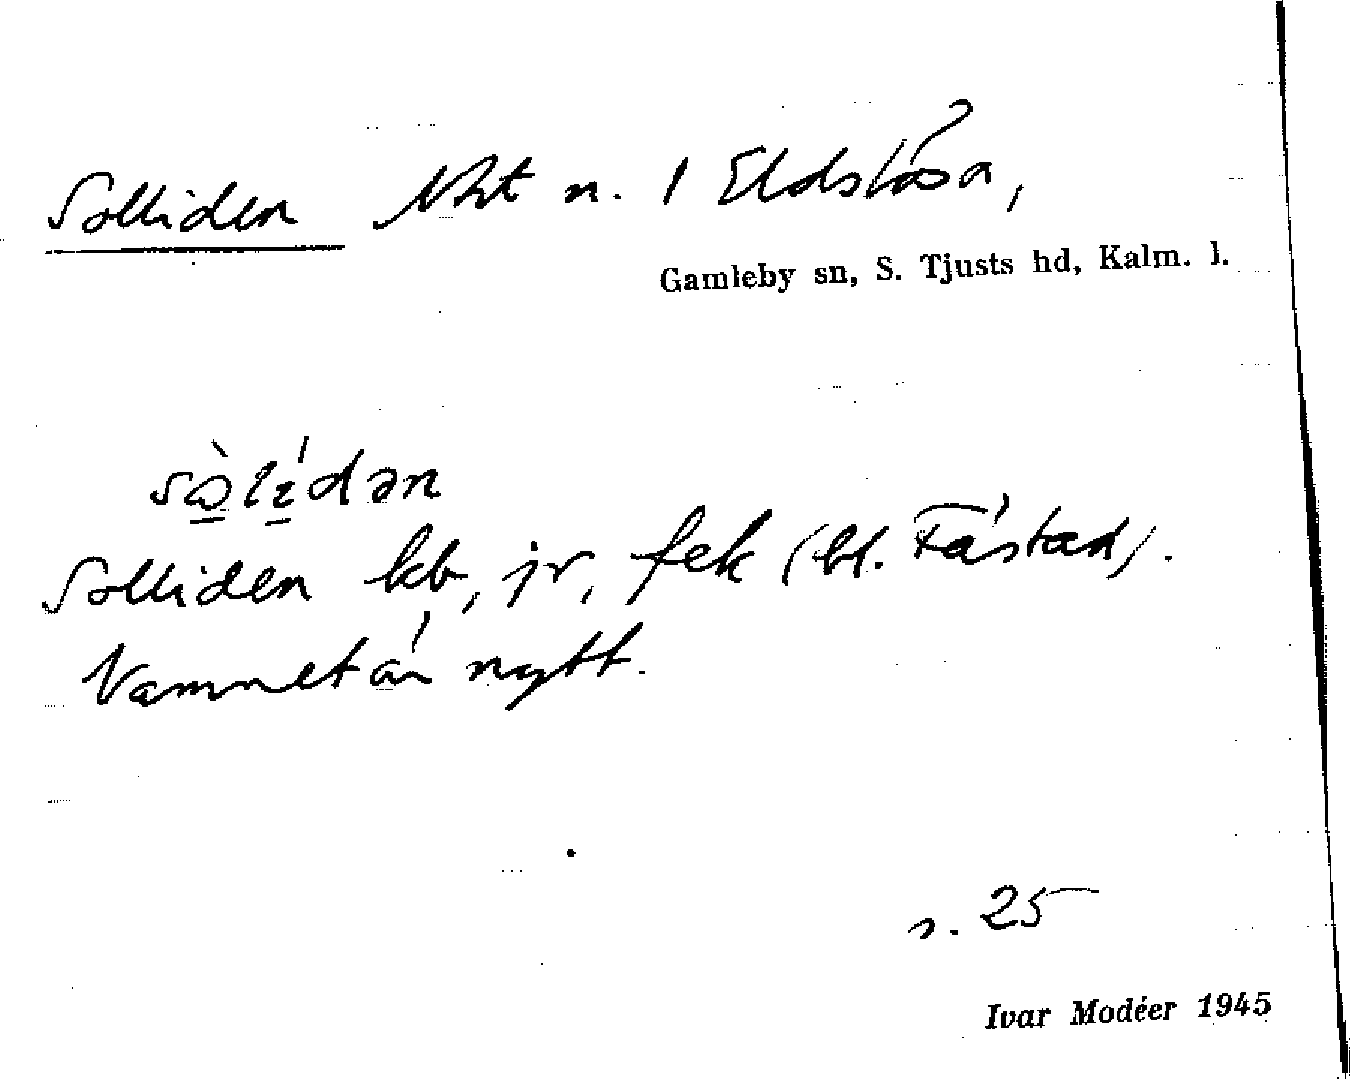 Solliden lht n. 1 Eldslösa,
Gamleby sn, S. Tjusts hd, Kalm. l.
sɷ̀lídən
Solliden kb, jr, fek (bl. Fåstad).
Namnet är nytt.
s. 25
Ivar Modéer 1945